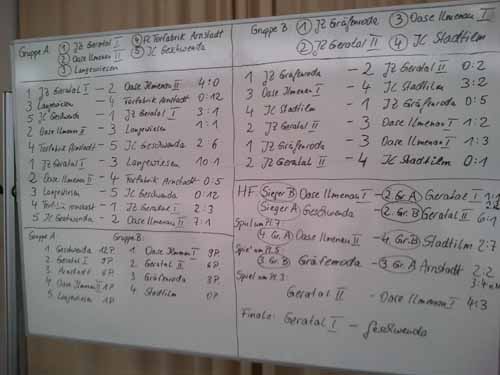 Gruppe A: ① JZ Geratal I ④ FC Torfabrik Arnstadt
② Oase Ilmenau II ⑤ JC Geschwenda
③ Langewiesen
1 JZ Geratal I - 2 Oase Ilmenau II 4:0
3 Langewiesen - 4 Torfabrik Arnstadt 0:12
5 JC Geschwenda - 1 JZ Geratal I 3:1
2 Oase Ilmenau II - 3 Langewiesen 1:1
4 Torfabrik Arnstadt - 5 JC Geschwenda 2:6
1 JZ Geratal I - 3 Langewiesen 10:1
2 Oase Ilmenau II - 4 Torfabrik Arnstadt 0:5
3 Langewiesen - 5 JC Geschwenda 0:12
4 Torfabrik Arnstadt - 1 JZ Geratal I 2:3
5 JC Geschwenda - 2 Oase Ilmenau II 7:1
Gruppe A
1 Geschwenda 12P.
2 Geratal I 9P.
3 Arnstadt 6P.
4 Oase Ilmenau II 1P
5 Langewiesen 1P
Gruppe B:
1 Oase Ilmenau I 9P.
2 Geratal II 6P.
3 Gräfenroda 3P.
4 Stadtilm 0P
Gruppe B: ① JZ Gräfenroda ③ Oase Ilmenau I
② JZ Geratal II ④ JC Stadtilm
1 JZ Gräfenroda - 2 JZ Geratal II 0:2
3 Oase Ilmenau I - 4 JC Stadtilm 3:2
4 JC Stadtilm - 1 JZ Gräfenroda 0:5
2 JZ Geratal II - 3 Oase Ilmenau I 1:2
1 JZ Gräfenroda - 3 Oase Ilmenau I 1:3
2 JZ Geratal II - 4 JC Stadtilm 0:1
HF Sieger B Oase Ilmenau I - 2. Gr. A Geratal I 1:1
Sieger A Geschwenda - 2. Gr. B Geratal II 6:1
Spiel um Pl. 7:
4. Gr. A Oase Ilmenau II - 4. Gr. B Stadtilm 2:7
Spiel um Pl. 5:
3. Gr. B Gräfenroda - 3. Gr. A Arnstadt 2:2
Spiel um Pl. 3:
Geratal II - Oase Ilmenau I 4:3
Finale: Geratal I - Geschwenda